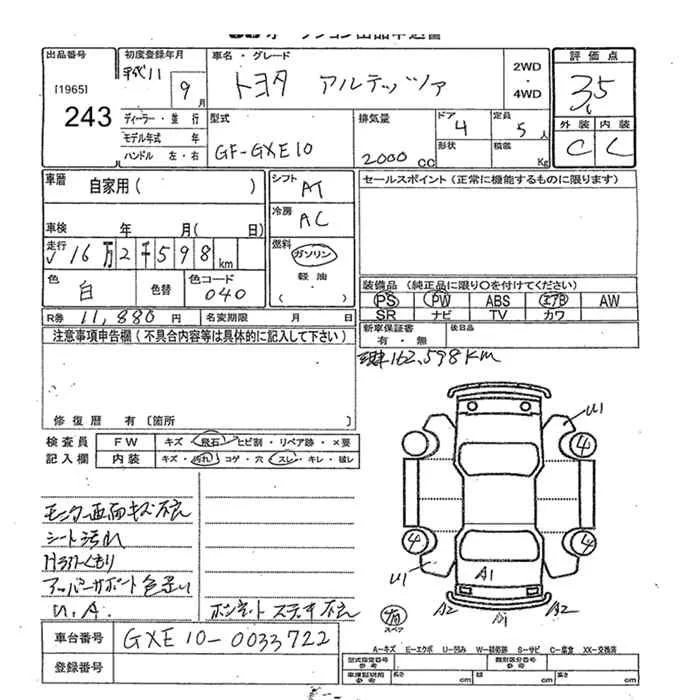 オークション出品申込書
出品番号
[1965]
243
初度登録年月
平成11 9月
ディーラー・並行
モデル年式 年
ハンドル 左・右
車名・グレード
トヨタ アルテッツァ
2WD
・
4WD
型式
GF-GXE10
排気量
2000 CC
ドア
4
形状
定員
5人
積載
Kg
評価点
3.5
外装 内装
C C
車歴
自家用( )
車検 年 月( 日)
走行
✓16万2千598km
色
白
色替
色コード
040
R券 11,880円
名変期限 月 日
シフト
AT
冷房
AC
燃料
ガソリン
軽油
( )
セールスポイント(正常に機能するものに限ります)
装備品(純正品に限り○を付けてください)
PS PW ABS エアB AW
SR ナビ TV カワ
新車保証書
有・無
後日品
実車162,598KM
注意事項申告欄(不具合内容等は具体的に記入して下さい)
修復歴 有〔箇所 〕
検査員
記入欄
FW キズ・飛石・ヒビ割・リペア跡・×要
内装 キズ・汚れ・コゲ・穴・スレ・キレ・破レ
モニター画面キズ不良
シート汚れ
Hライトくもり
アッパーサポート色違い
U.A.
ボンネットステッキ不良
U1
4
4
4
4
U1
A1
A2 A1 A2
有
スペア
車台番号
GXE10-0033722
登録番号
A-キズ E-エクボ U-凹み W-補修跡 S-サビ C-腐食 XX-交換済
型式指定番号
参考
類別区分番号
参考
車庫証明用
参考
長さ cm
幅 cm
高さ cm